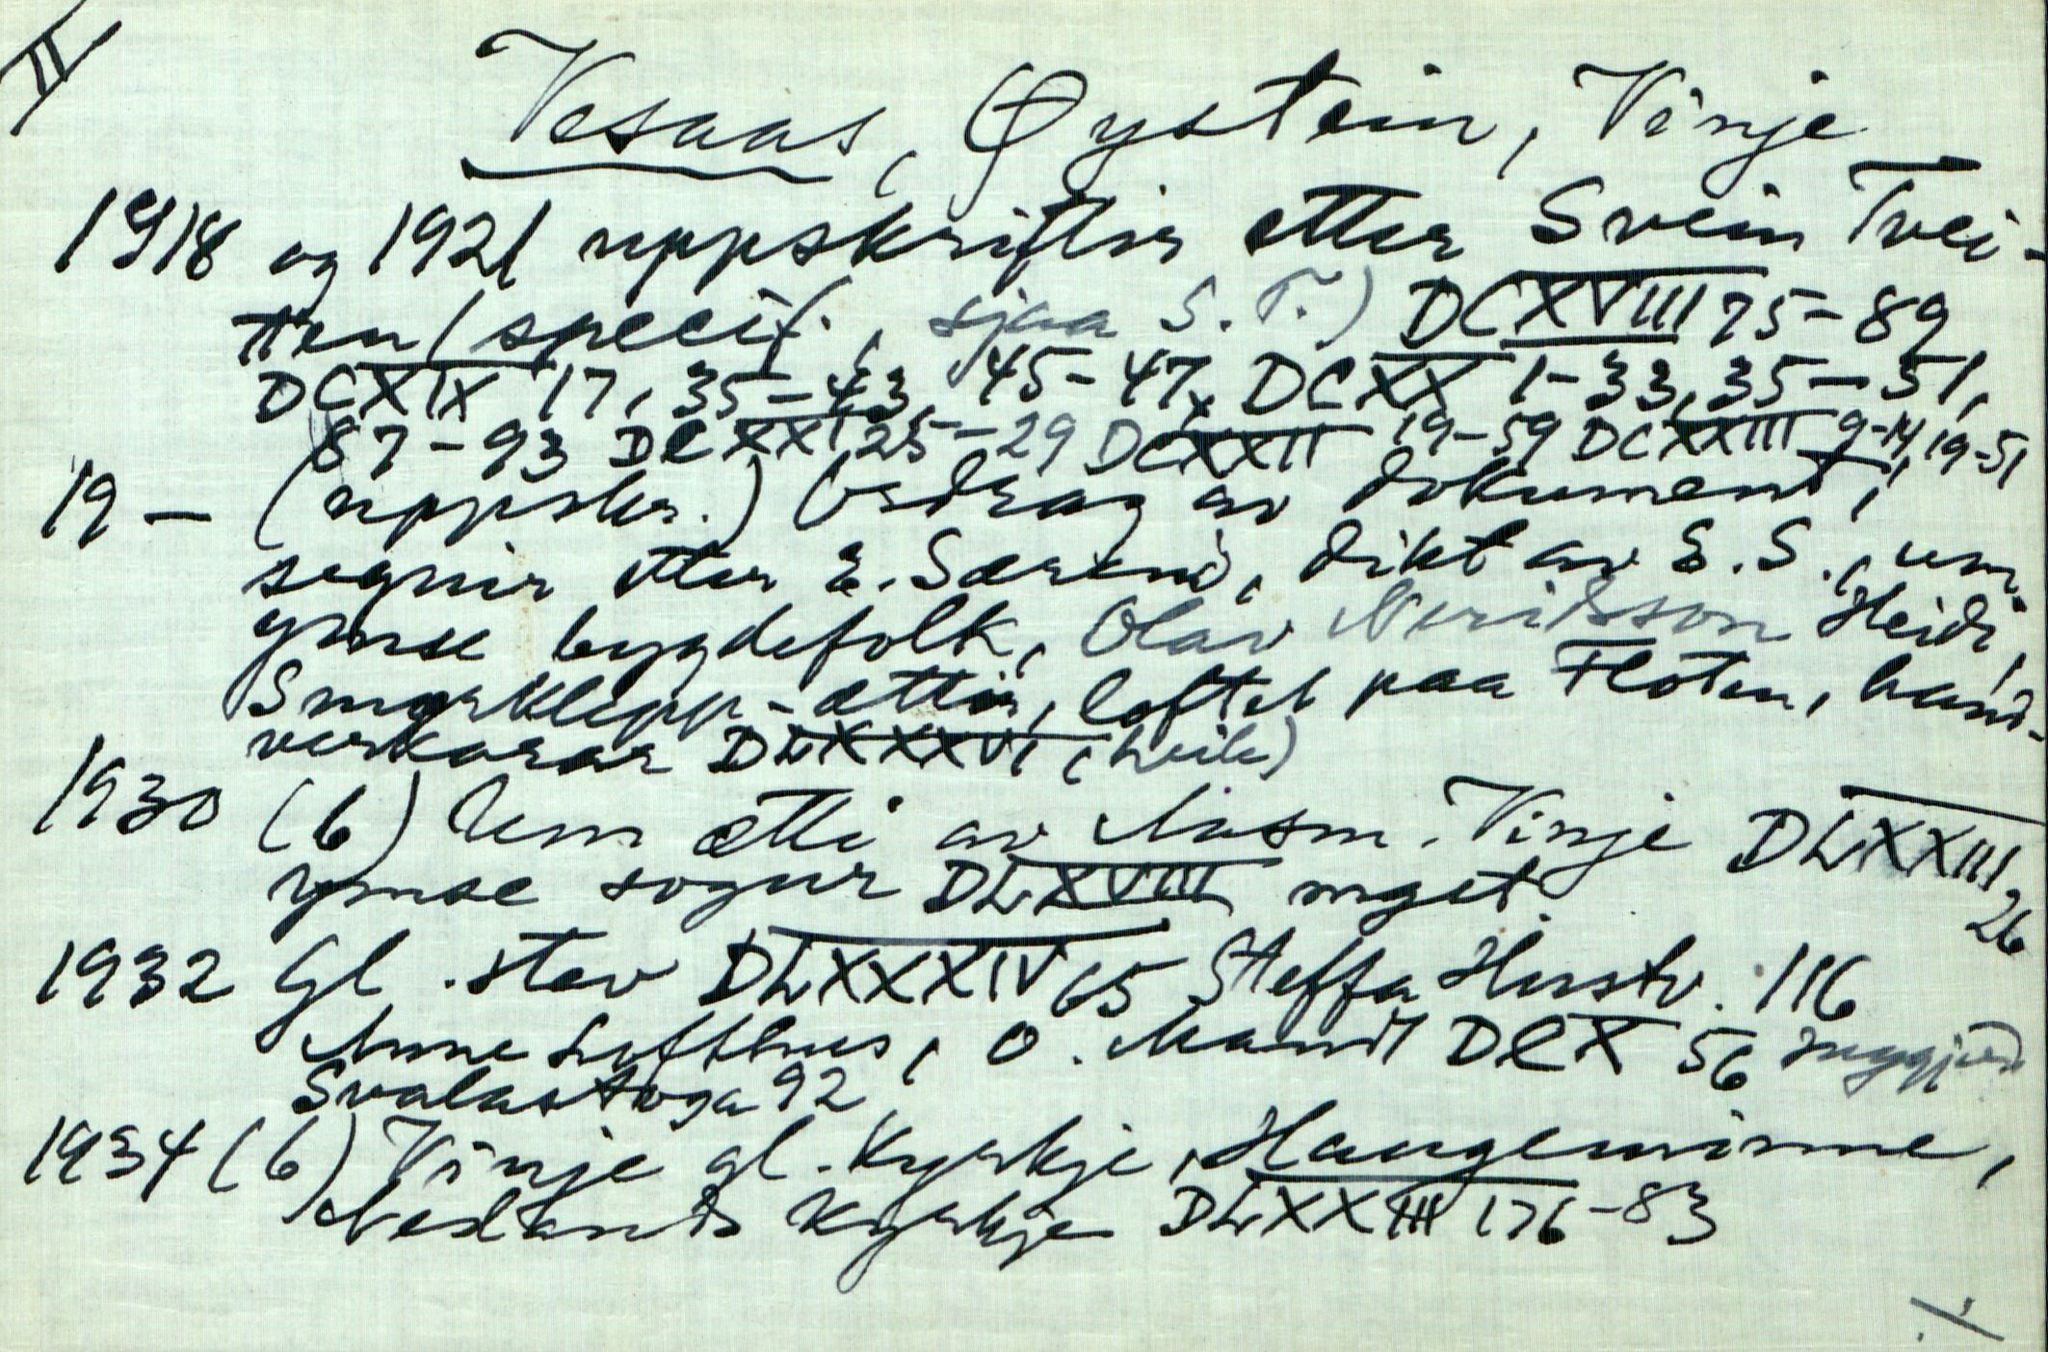 II
Vesaas, Øystein, Vinje
1918 og 1921 uppskriftir etter Svein Tvei-
tten (specif., sjaa S. T.) DCXVIII 75-89
DCXIX 17, 35-43, 45-47, DCXX 1-33, 35-51,
87-93 DCXXI 25-29 DCXXII 19-59 DCXXIII 9-14, 19-51
19 — (uppskr.) Utdrag av dokument,
segnir etter E. Særend, dikt av E. S., um
ymse bygdefolk, Olav Neridsson Heidi,
Smørklepp-ættir, loftet paa Flóten, hand-
verkarar DLXXXVI (heile)
1930 (b) Um ætti av Aasm. Vinje DLXXIII 26
ymse sogur DLXVIII myet
1932 Gl. stev DLXXXIV 65 Steffa Hustv. 116
Anne Lofthus, O. Mandt DCX 56
Svalastoga 92
1934 (b) Vinje gl. kyrkje, Haugeminne,
Nesland kyrkje DLXXIII 176-83